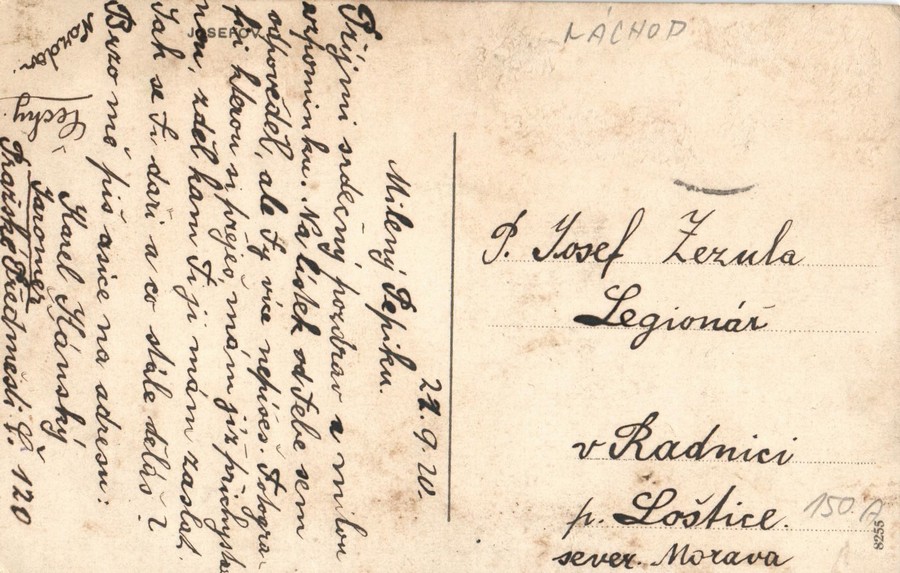 JOSEFOV
NÁCHOD
22.9.20.
Milený Pepiku.
Přijmi srdečný pozdrav a milou
vzpomínku. Na lístek od Tebe sem
odpověděl, ale Ty více nepíšeš. Fotogra-
fii kterou si přeješ, mám již přichysta-
nou, zděl kam Ti ji mám zaslat.
Jak se Ti daří a co stále děláš?
Brzo mě piš asice na adresu:
Karel Hánský
Jaroměř
Pražské Předměstí č. 120
Čechy.
P. Josef Zezula
Legionář
v Radnici
p. Loštice.
sever. Morava
150.A
8255